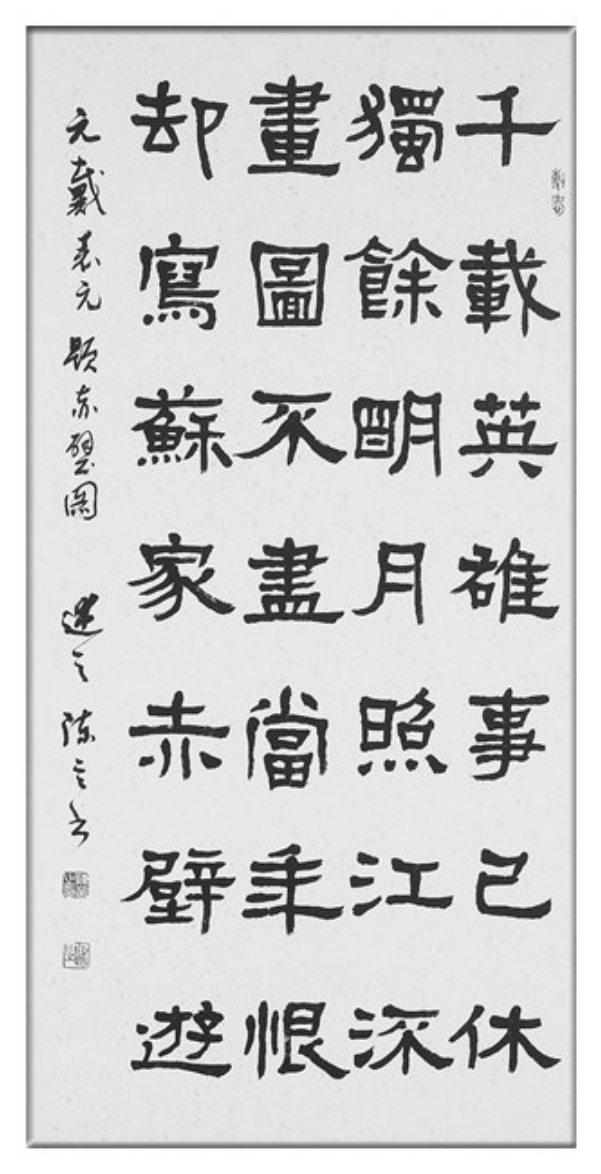 千載英雄事已休
獨餘明月照江深
畫圖不盡當年恨
却寫蘇家赤壁遊
元戴表元题赤壁图 陈